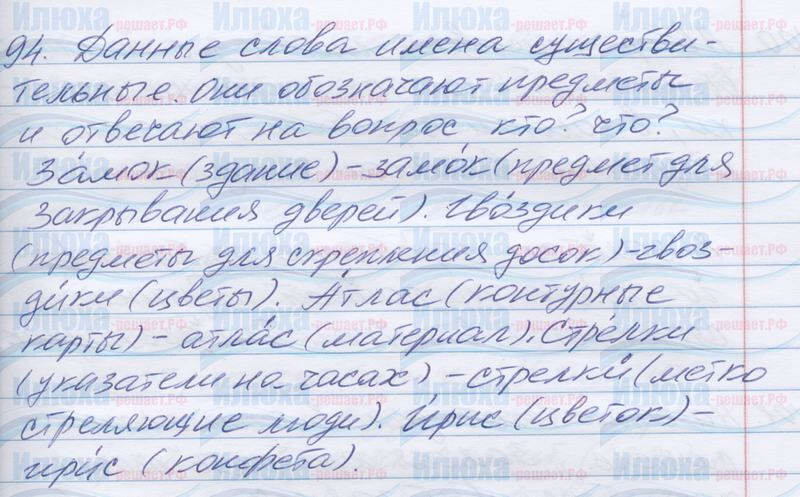 94. Данные слова имена существи-
тельные. Они обозначают предметы
и отвечают на вопрос кто? что?
За́мок (здание) – замо́к (предмет для
закрывания дверей). Гво́здики
(предметы для скрепления досок) – гвоз-
ди́ки (цветы). А́тлас (контурные
карты) – атла́с (материал). Стре́лки
(указатели на часах) – стрелки́ (метко
стреляющие люди). И́рис (цветок) –
ири́с (конфета).